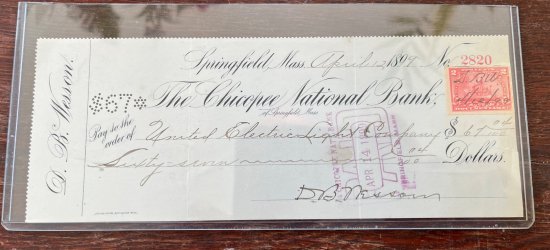 Springfield, Mass. April 1899 No. 2820
D. B. Wesson.
$67
The Chicopee National Bank,
of Springfield, Mass.
Pay to the order of United Electric Light Company $67 00
Sixty seven 00 Dollars.
APR 14
D.B. Wesson
2